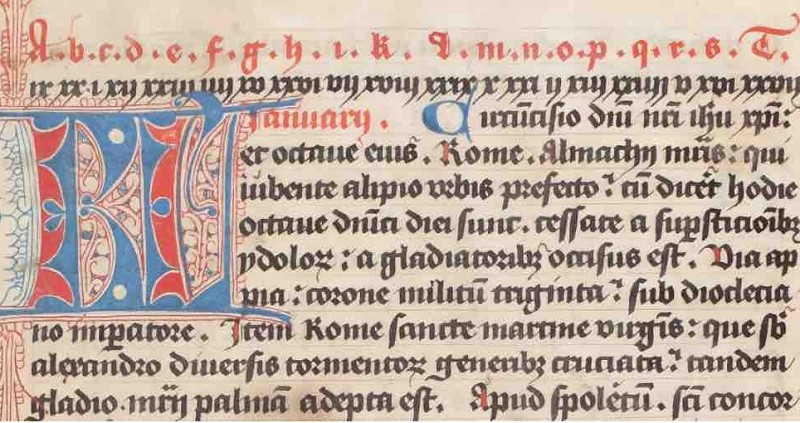 A.b.c.d.e.f.g.h.i.k.l.m.n.o.p.q.r.s.T.
ix xx i xij xxiij iiij xv xxvi vij xviij xxix x xxi ij xiij xxiiij v xvi xxvij
KL Januarij. Circūcisio dnī nrī ihū xpī:
et octaue eius. Rome. Almachij mr̄is: qui
iubente alipio vrbis prefecto: cū dicēt hodie
octaue dnīci diei sunt. cessate a suꝑsticionibꝫ
ydoloꝝ: a gladiatoribꝫ occisus est. Via ap
pia: corone militū triginta: sub dioclecia
no imꝑatore. Item Rome sancte martine virgīs: que sb̄
alexandro diuersis tormentoꝝ generibꝫ cruciata: tandem
gladio mr̄ij palmā adepta est. Apud spoletū. scī concor